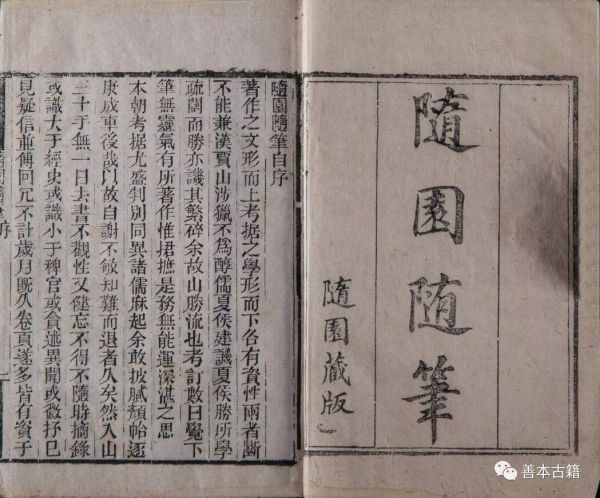 隨園随筆
隨園藏版
隨園隨筆自序
著作之文形而上考据之學形而下各有資性兩者斷
不能兼漢賈山涉獵不爲醇儒夏侯建譏夏侯勝所學
疏闊而勝亦譏其繁碎余故山勝流也考訂數日覺下
筆無靈氣有所著作惟捃摭是務無能運深湛之思
本朝考据尤盛判別同異諸儒麻起余敢披膩顏帢逐
康成車後哉以故自謝不敏知難而退者久矣然入山
三十年無一日去書不觀性又健忘不得不隨時摘錄
或識大于經史或識小于稗官或貪述異聞或微抒己
見疑信並傳回冗不計歲月既久卷頁遂多皆有資于
善本古籍